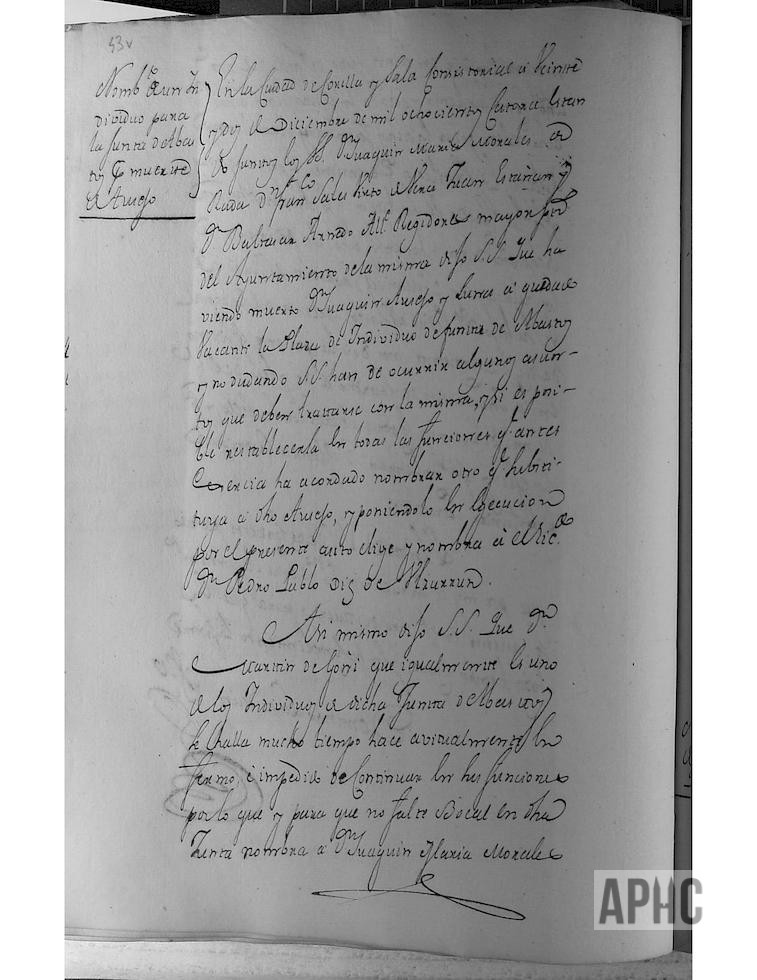 53v
Nomb.to de un In
dividuo para
la Junta de Abas
tos p.r muerte
de Ausejo
En la Ciudad de Corella y Sala Consistorial a Veinte
y dos de Diciembre de mil ochocientos Catorce Estan
do juntos los SS. D.n Juaquin Maria Morales de
Rada D.n Fran.co Sales Virto de Vera Juan Estañan y
D.n Baltasar Arnedo Alf. Regidores mayor p.te
del Ayuntamiento de la misma dijo S.S. Que ha
viendo muerto D.n Juaquin Ausejo y Luna a quedado
Vacante la Plaza de Individuo de junta de Abastos
y no dudando S.S. han de ocurrir algunos asun-
tos que deben tratarse con la misma, y si es posi-
ble restablecerla en todas las funciones q.e antes
exercia ha acordado nombrar otro q.e substi-
tuya a dho Ausejo, y poniendolo en Egecucion
por el presente auto elige y nombra a el Lic.do
D.n Pedro Pablo Diz de Ulzurrun.
Asi mismo dijo S.S. Que D.n
Martin de Goñi que igualmente Es uno
de los Individuos de dicha Junta de Abastos
se halla mucho tiempo hace avitualmente En
fermo, e impedido de Continuar en sus funciones
por lo que y para que no falte Bocal en dha
Junta nombra a D.n Juaquin Maria Morales
APHC